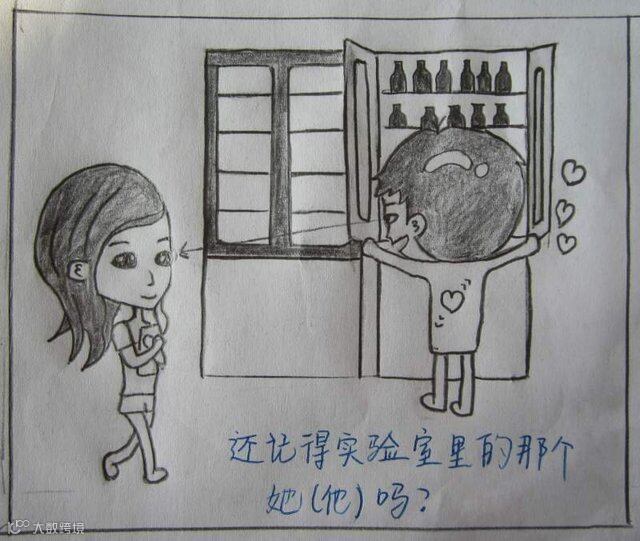 还记得实验室里的那个
她(他)吗?
大数跨境